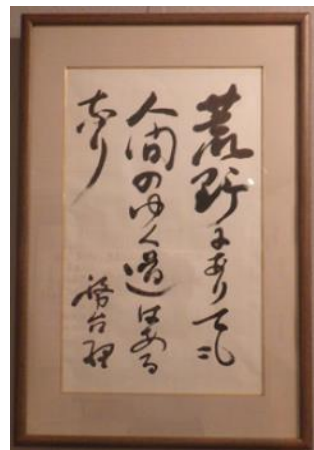 荒野にありても
人間のゆく道はある
なり
務台理